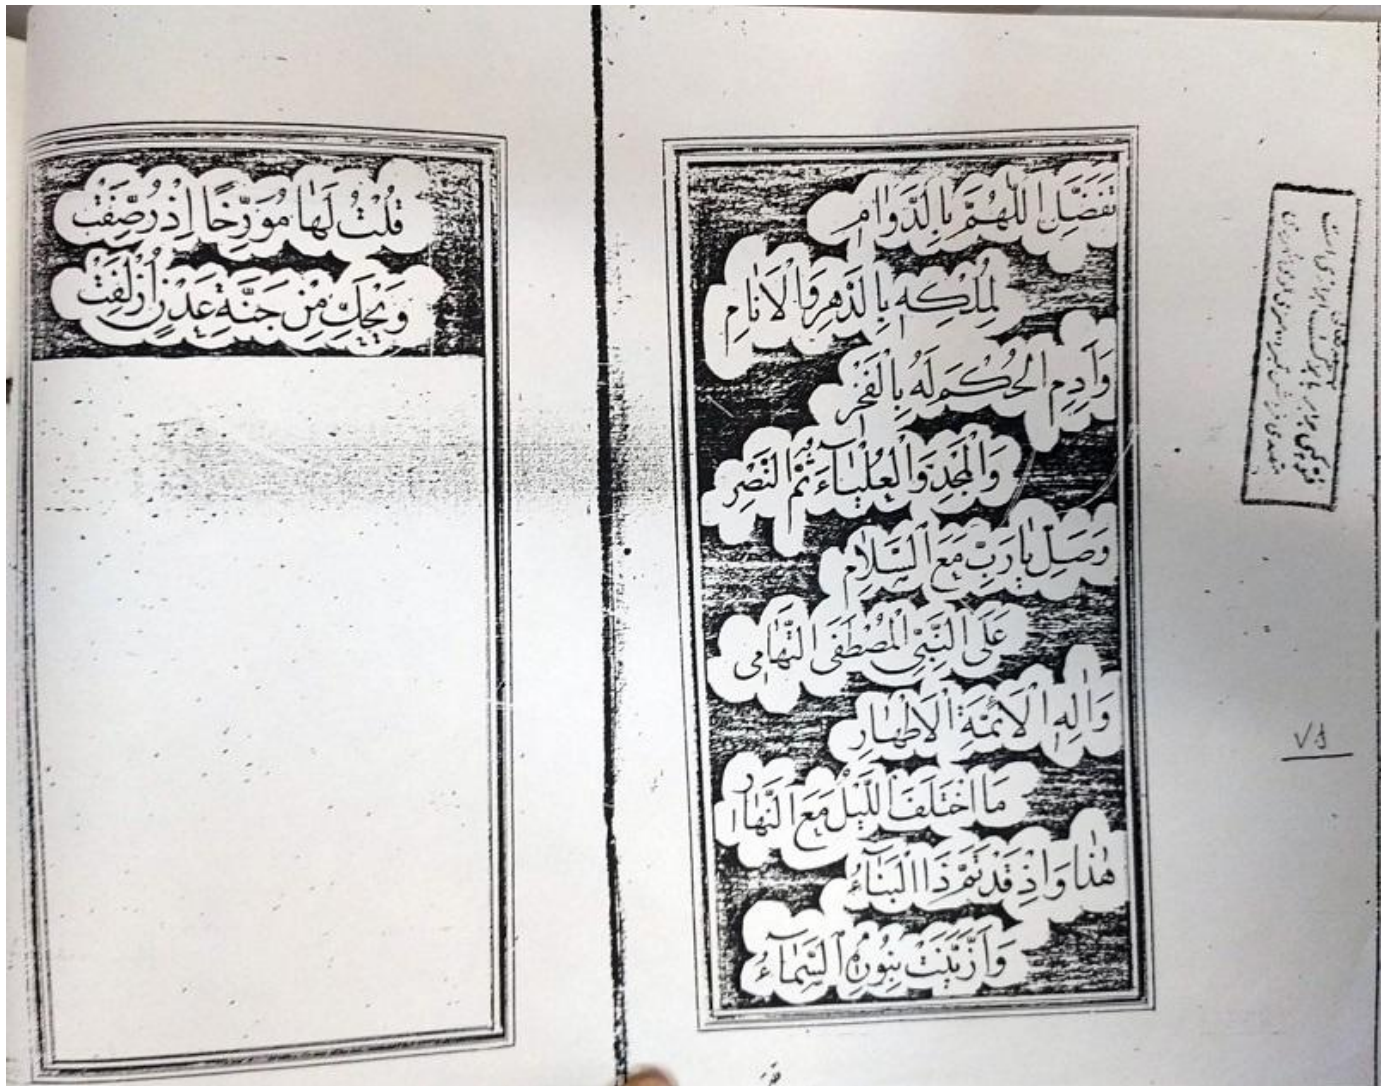 تَفَضَّلِ اللّٰهُمَّ بِالدَّوَامِ
لِمُلْكِهِ بِالدَّهْرِ وَالْاَنَامِ
وَاَدِمِ الْحُكْمَ لَهُ بِالْفَخْرِ
وَالْمَجْدِ وَالْعُلْيَاءِ ثُمَّ النَّصْرِ
وَصَلِّ يَا رَبِّ مَعَ السَّلَامِ
عَلَى النَّبِيِّ الْمُصْطَفَى التَّهَامِى
وَاٰلِهِ الْاَئِمَّةِ الْاَطْهَارِ
مَا اخْتَلَفَ اللَّيْلُ مَعَ النَّهَارِ
هٰذَا وَاِذْ قَدْ تَمَّ ذَا الْبَنَآءُ
وَازَّيَّنَتْ بِنُورِهِ السَّمَآءُ
قُلْتُ لَهَا مُوَرِّخًا اِذْ رُصِّفَتْ
وَيْحَكِ مِنْ جَنَّةِ عَدْنٍ اُزْلِفَتْ